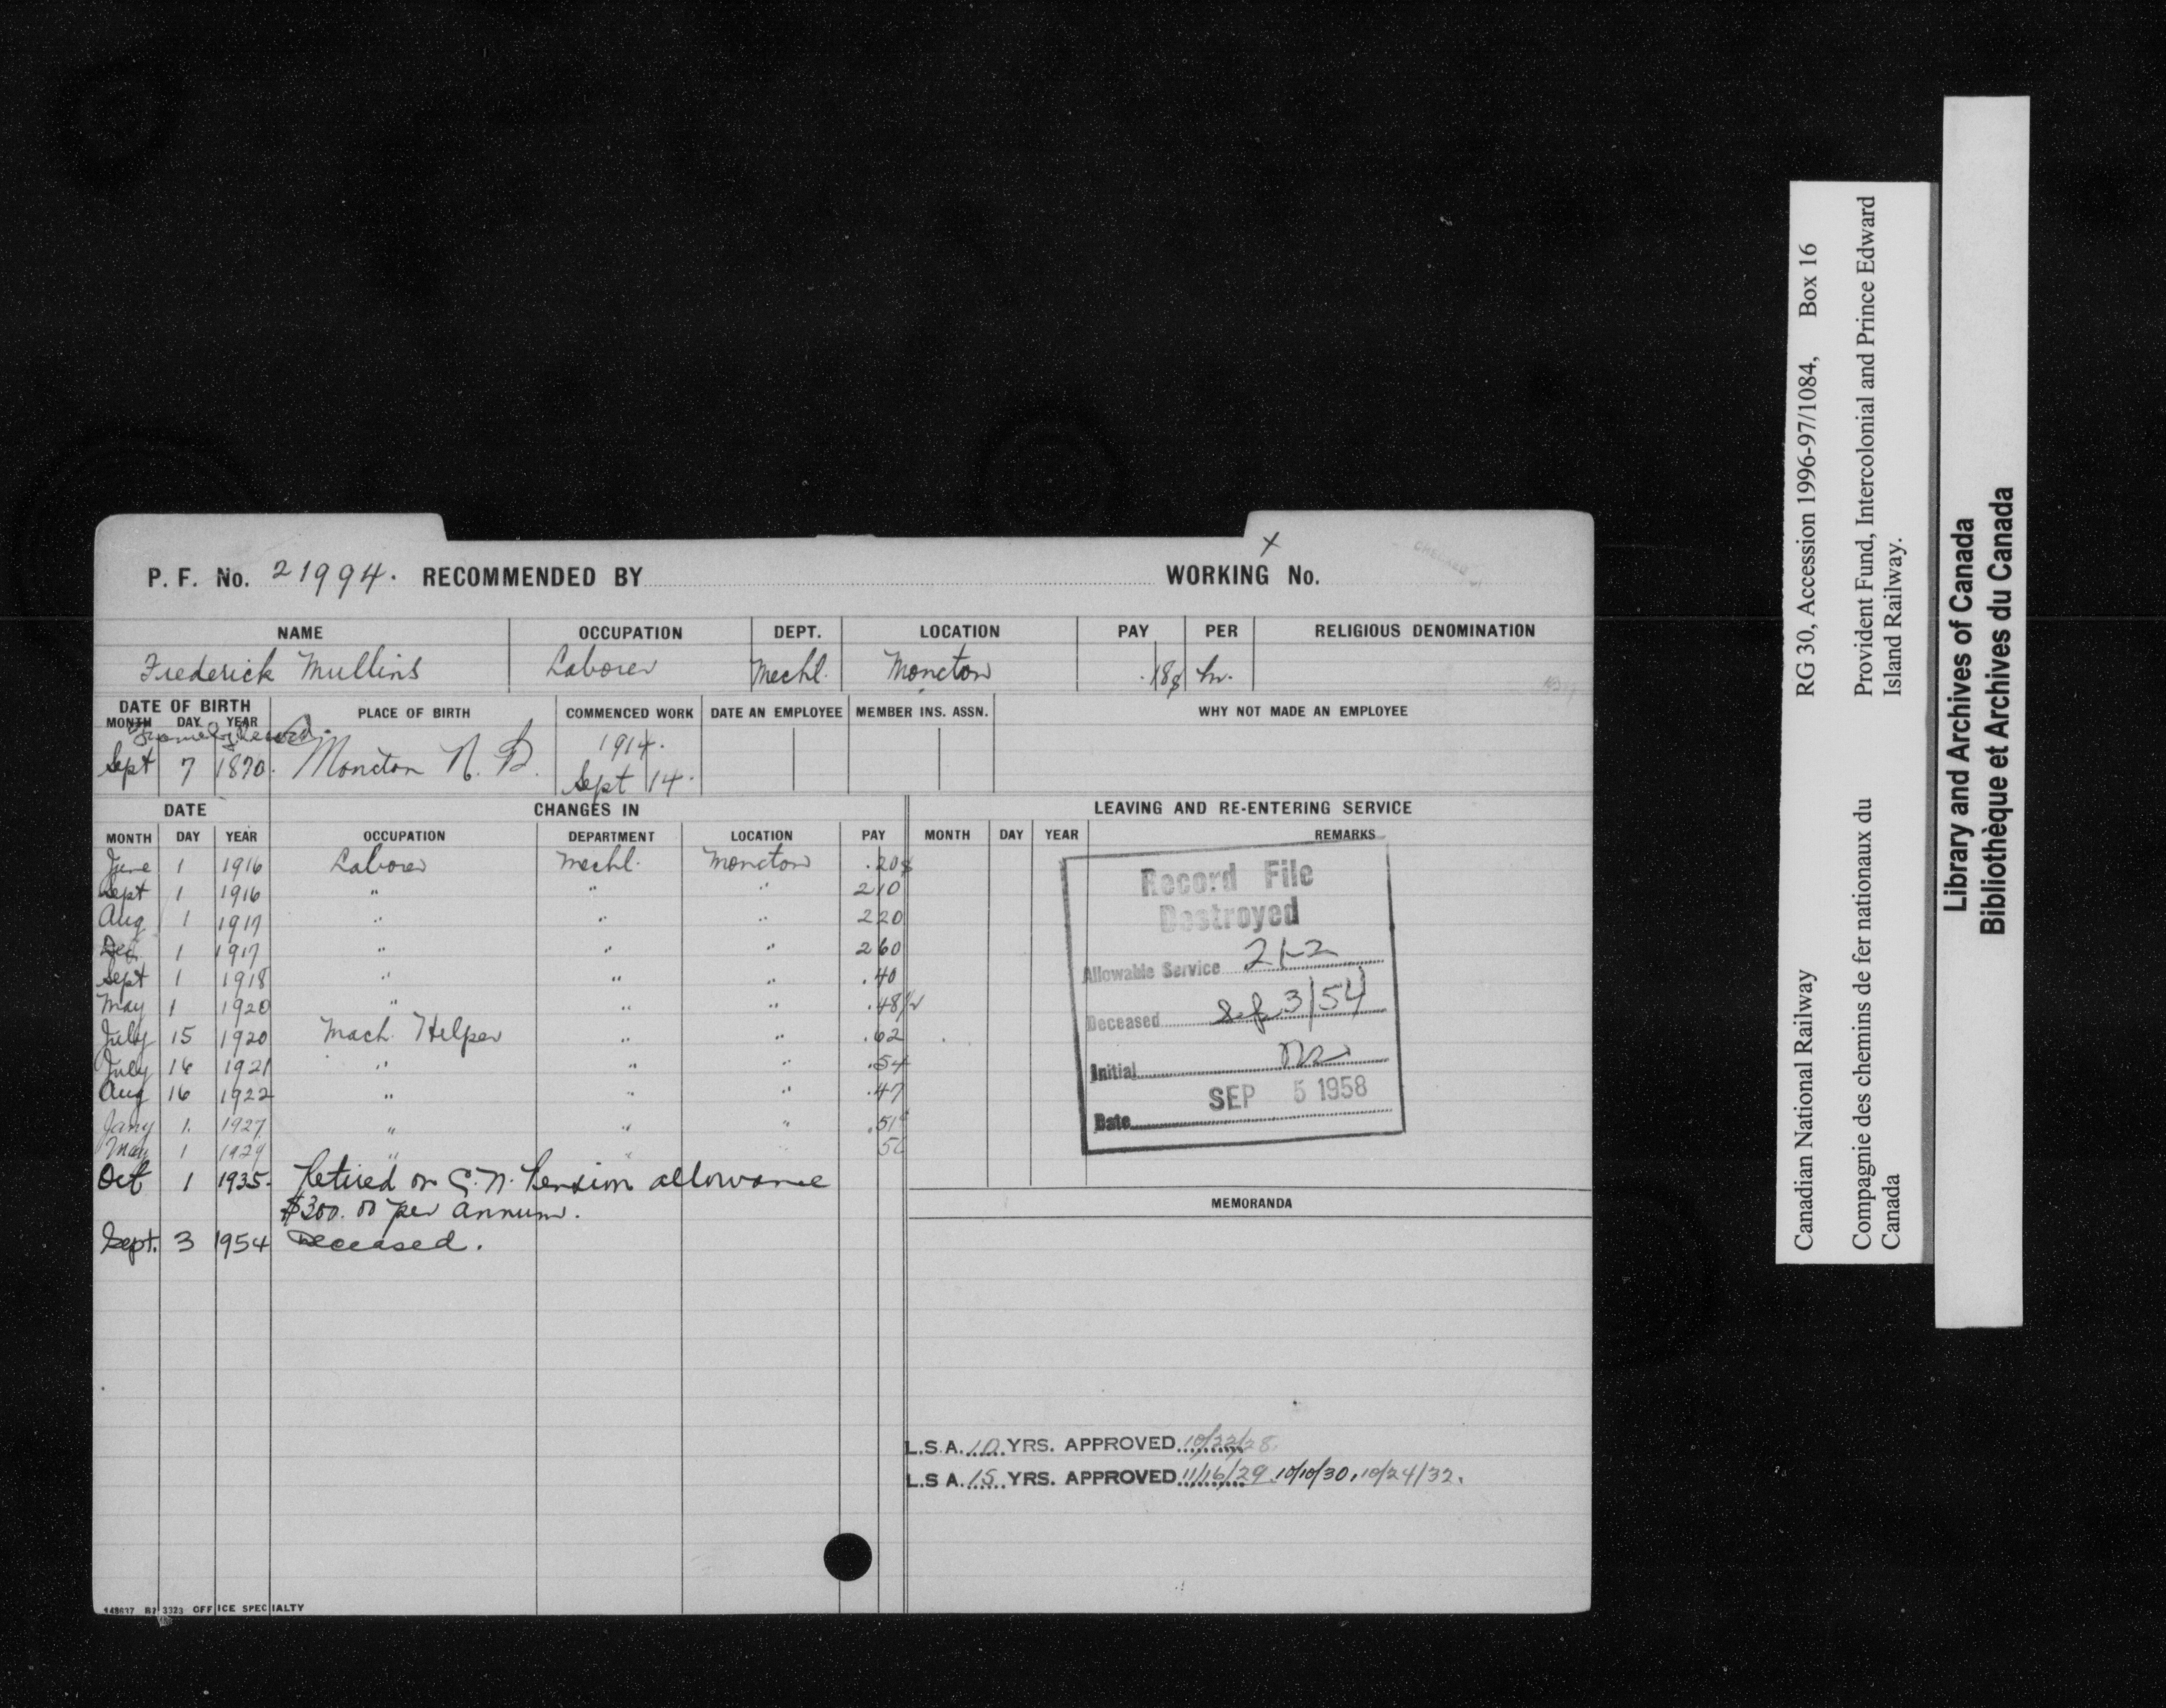 P. F. No. 21994. RECOMMENDED BY WORKING No. X
CHECKED
NAME OCCUPATION DEPT. LOCATION PAY PER RELIGIOUS DENOMINATION
Frederick Mullins Laborer Mechl. Moncton .18¢ hr.
DATE OF BIRTH PLACE OF BIRTH COMMENCED WORK DATE AN EMPLOYEE MEMBER INS. ASSN. WHY NOT MADE AN EMPLOYEE
MONTH DAY YEAR
Sept 7 1870. Moncton N. B. 1914. Sept 14.
DATE CHANGES IN LEAVING AND RE-ENTERING SERVICE
MONTH DAY YEAR OCCUPATION DEPARTMENT LOCATION PAY MONTH DAY YEAR REMARKS
June 1 1916 Laborer Mechl. Moncton .20¢
Sept 1 1916 " " " 210
Aug 1 1917 " " " 220
Dec 1 1917 " " " 260
Sept 1 1918 " " " .40
May 1 1920 " " " .48½
July 15 1920 Mach. Helper " " .62
July 16 1921 " " " .54
Aug 16 1922 " " " .47
Jany 1. 1927 " " " .51
May 1 1929 " "
Oct 1 1935. Retired on C.N. Pension allowance
$300.00 per annum.
Sept. 3 1954 Deceased.
Record File
Destroyed
Allowable Service 21-2
Deceased Sep 3/54
Initial
SEP 5 1958
Date
MEMORANDA
L.S.A. 10 YRS. APPROVED 10/22/28
L.S.A. 15 YRS. APPROVED 11/16/29. 10/10/30, 10/24/32.
148637 B7 3323 OFFICE SPECIALTY
Canadian National Railway RG 30, Accession 1996-97/1084, Box 16
Compagnie des chemins de fer nationaux du Canada
Provident Fund, Intercolonial and Prince Edward Island Railway.
Library and Archives of Canada
Bibliothèque et Archives du Canada